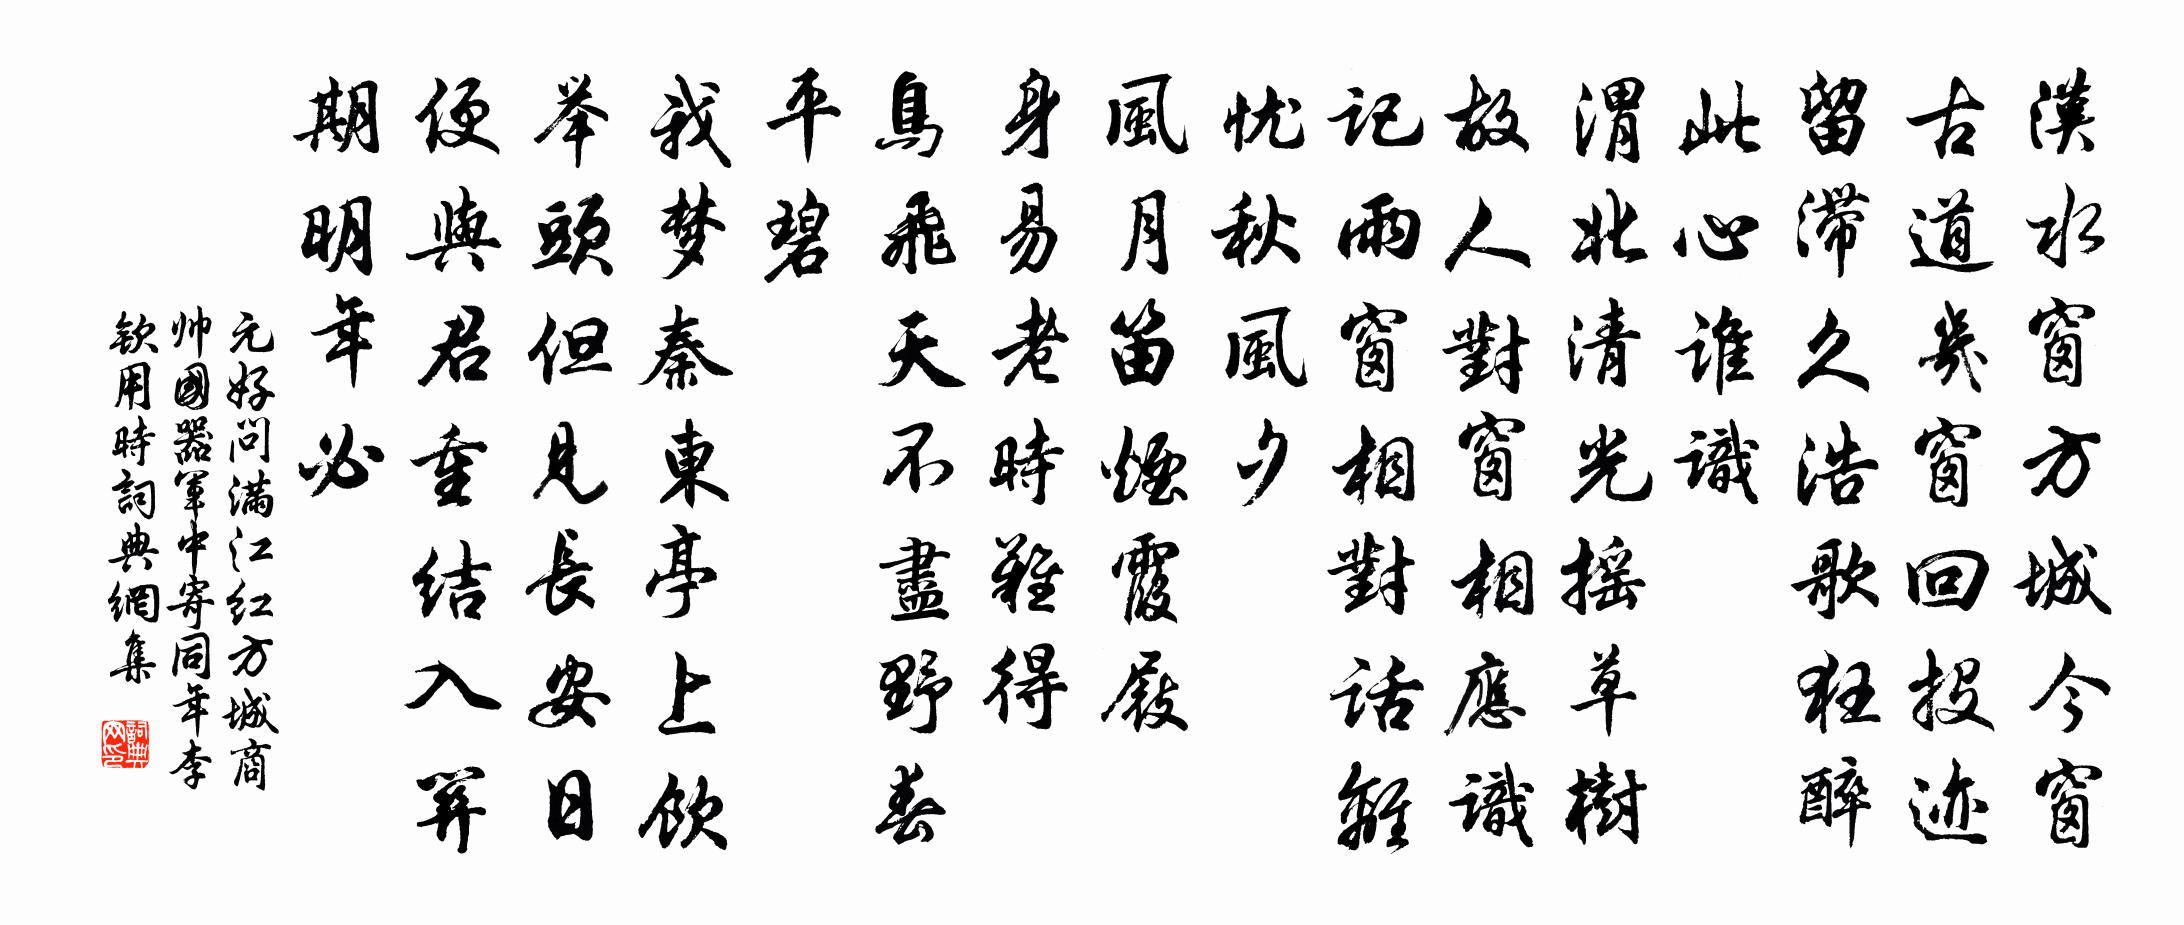 漢水窗方城今窗
古道幾窗回投迹
留滯久浩歌狂醉
此心誰識
渭北清光摇草樹
故人對窗相應識
記雨窗相對話離
忧秋風夕
風月笛煙霞屐
身易老時難得
鳥飛天不盡野春
平碧
我梦秦東亭上飲
举頭但見長安日
便與君重結入關
期明年必
元好問满江红方城商
帅國器軍中寄同年李
欽用時詞典網集
詞典网印